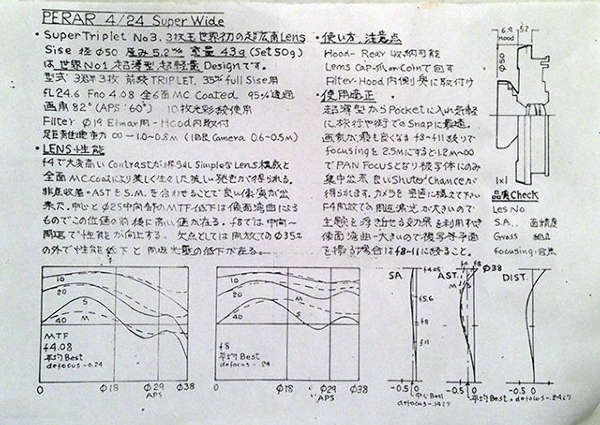 PERAR 4/24 Super Wide
・SuperTriplet No3. 3枚玉世界初の超広角Lens
Sise 径φ50 厚み5.2㎜ 重量43g (Set50g)
は世界No1 超薄型 超軽量 Designです。
型式 3群3枚 前絞TRIPLET, 35% full Sise用
fL24.6 Fno 4.08 全6面MC Coated 95%透過
画角82°(APS '60°) 10枚光彩絞使用
Filter φ19 Elmar用-Hood内取付
∞-1.0~0.8m (1部Camera 0.6~0.5m)
・LENS+性能
f4で大変高いContrastが得られSimpleなLens構成と
全面MC.Coatにより美しく生々した美しい発色が得られる。
非点収差・ASTもS.M.を合わせることで良い像質が出
来た。中心とφ25中間部のMTF低下は像面湾曲による
ものでこの位置の前後に高い値が在る。f8では中間~
周辺で性能が向上する。欠点としては開放でのφ35%
の外で性能低下と周辺光量の低下が在る。
・使い方、注意点
Hood-Rear 収納可能
Lens Cap-爪orCoinで回す
Filter-Hood内側奥に取付け
・使用矯正
超薄型からPocketに入れ気軽
に旅行や街でのSnapに最適。
画質が最も良くなるf8~f11絞りで
focusingを2.5mにすると1.2m~∞
でPAN FOCUSとなり被写体にのみ
集中出来良いShuterChanceが
得られます。カメラを
F4開放では周辺減光が大きいので
主題を浮き出せる効果を利用出来
像面湾曲-大きいので複写等平面
を撮る場合はf8~11に絞ること。
6.4 5.2
Hood
φ50
1x1
品質Check
Les No
S.A. 面精度
Grass
focusing
10
20
40
S
M
MTF
f4.08
平均Best
defocus -0.24
0 φ18 φ29 φ38
APS
10
20
40
S
M
f8
平均Best
defocus -.24
0 φ18 φ29 φ38
APS
SA
f4.08
f5.6
f8
f11
-0.5 0
中心Best
AST.
φ38
M S
-0.5 0
平均Best
DIST.
-0.5 0